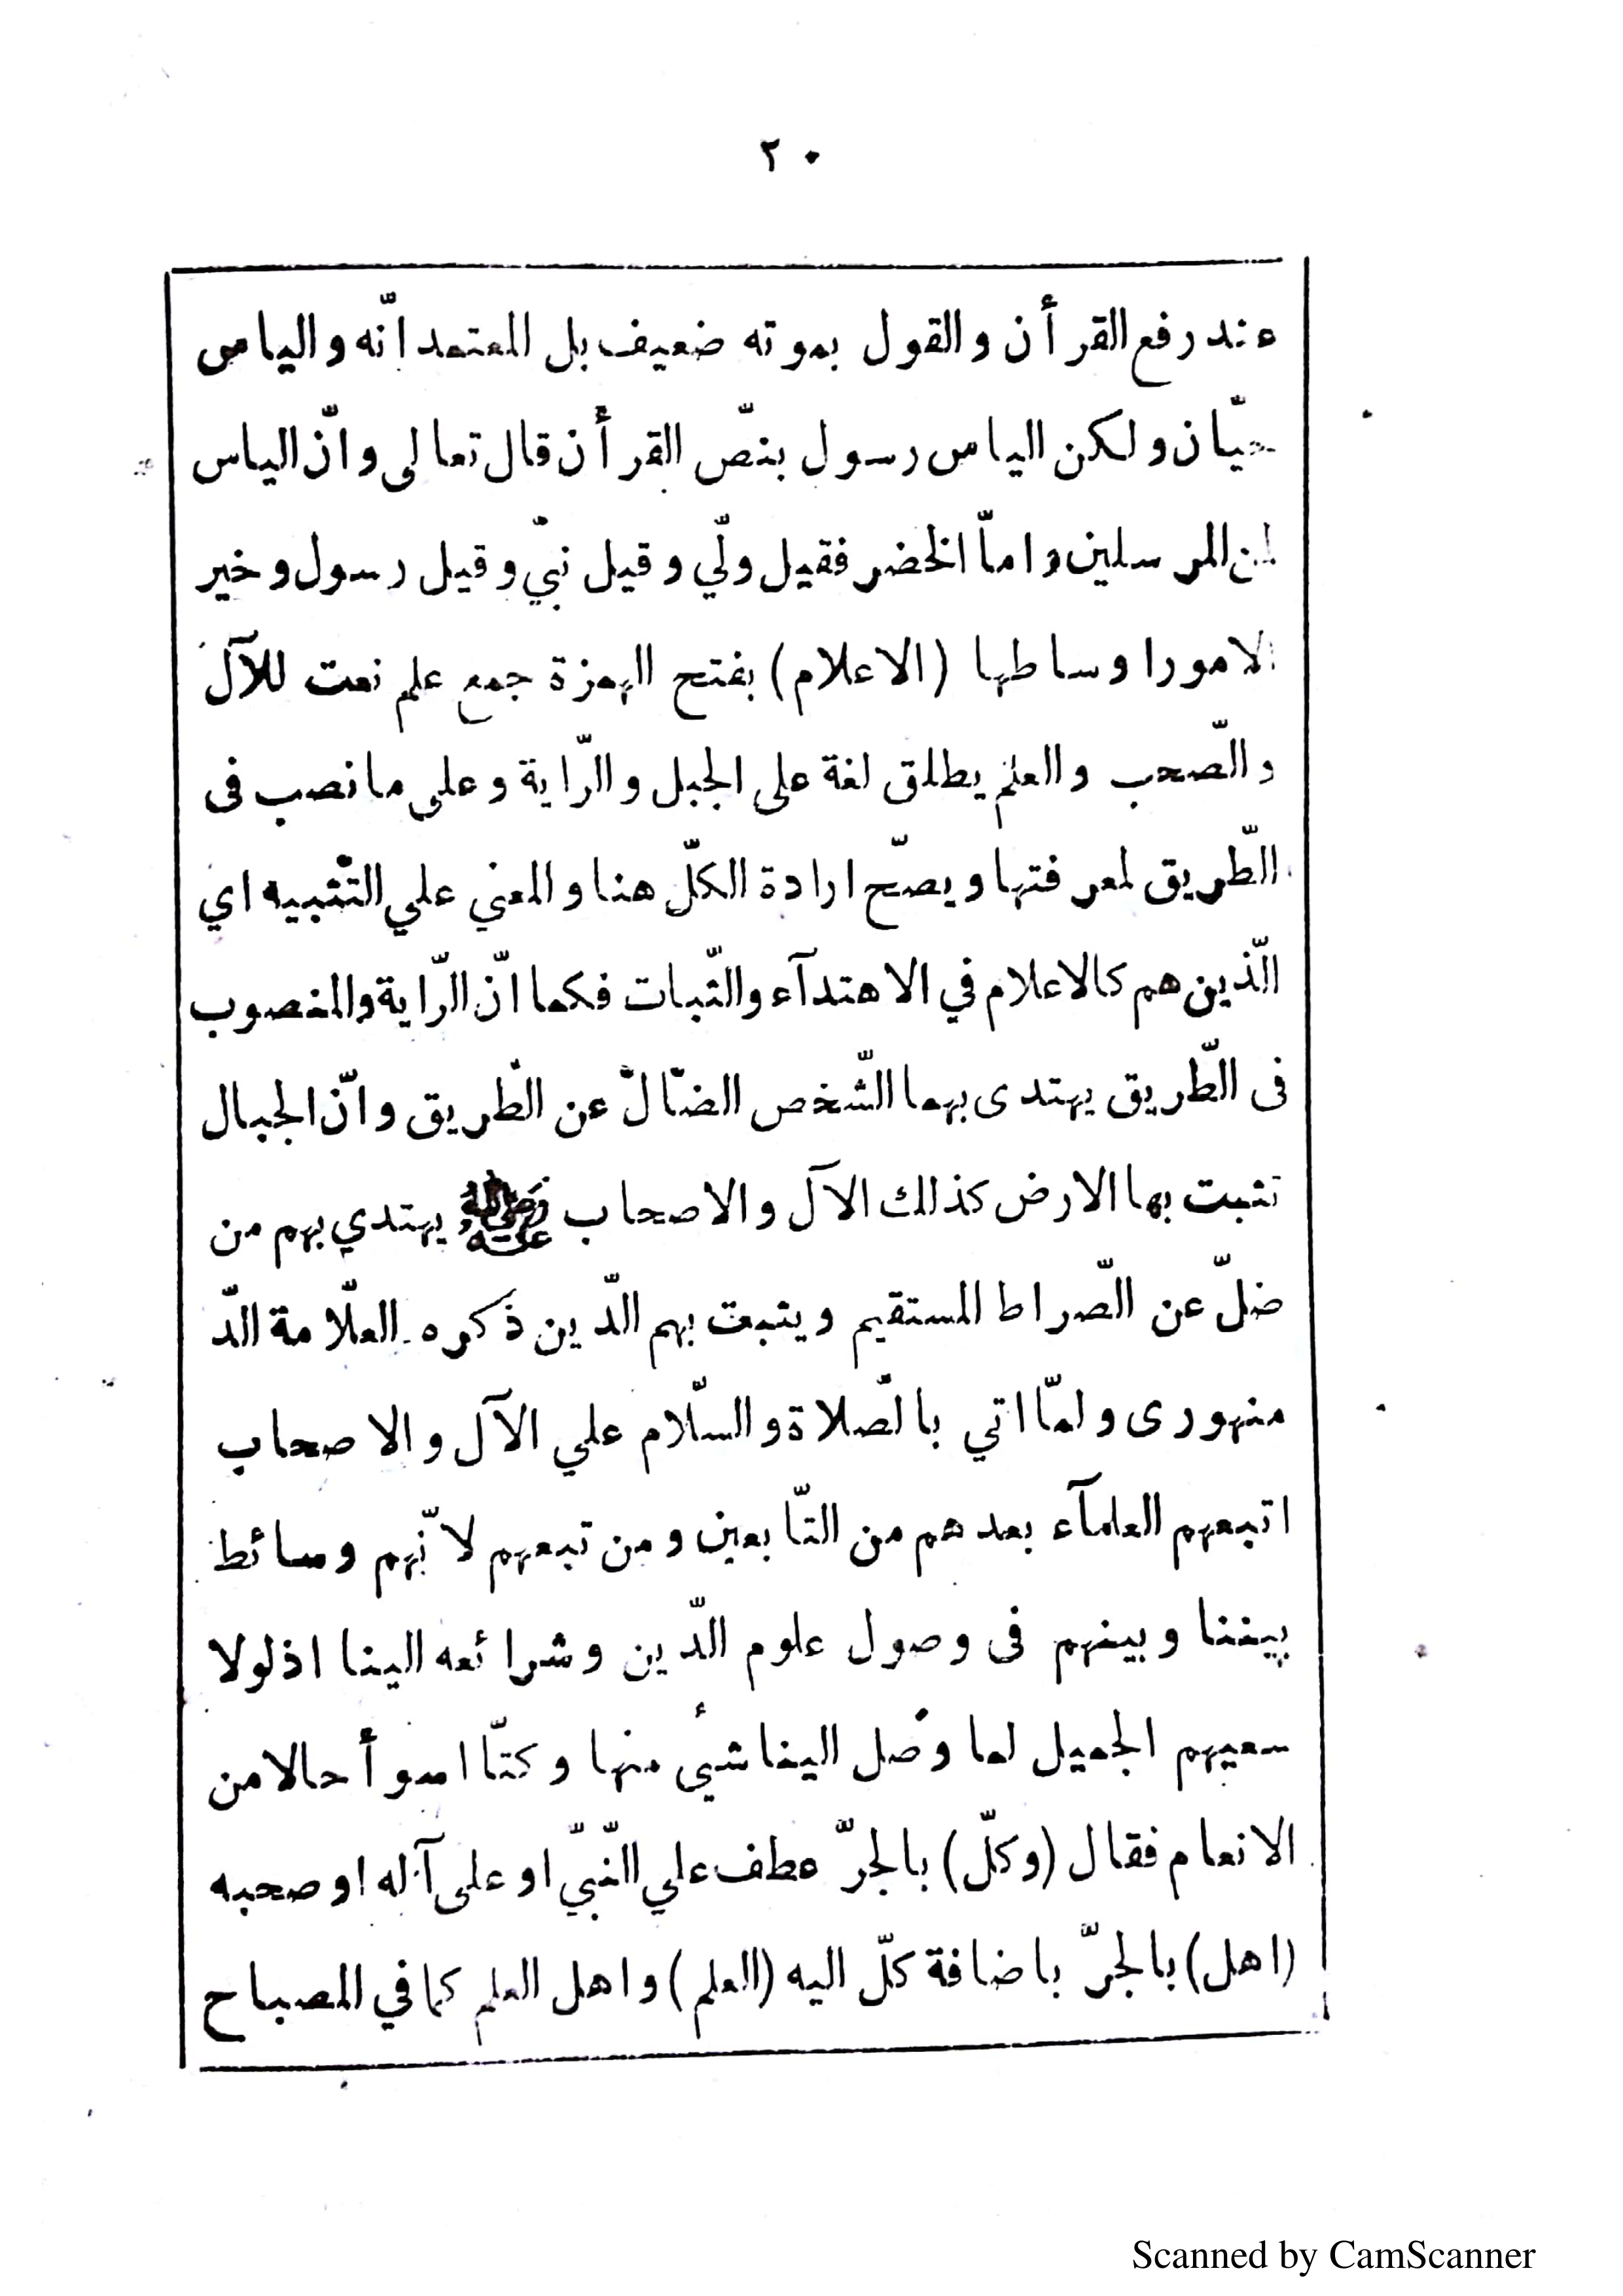 ٢٠
عند رفع القرأن والقول بموته ضعيف بل المعتمد انّه والياس
حيّان ولكن الياس رسول بنصّ القرأن قال تعالى وانّ الياس
لمن المرسلين وامّا الخضر فقيل وليّ وقيل نبيّ وقيل رسول وخير
الامور اوساطها (الاعلام) بفتح الهمزة جمع علم نعت للآل
والصّحب والعلم يطلق لغة على الجبل والرّاية وعلى ما نصب فى
الطّريق لمعرفتها ويصحّ ارادة الكلّ هنا والمعني علي التّشبيه اي
الّذين هم كالاعلام في الاهتدآء والثّبات فكما انّ الرّاية والمنصوب
فى الطّريق يهتدى بهما الشّخص الضّالّ عن الطّريق وانّ الجبال
تثبت بها الارض كذلك الآل والاصحاب يهتدي بهم من
ضلّ عن الصّراط المستقيم ويثبت بهم الدّين ذكره العلّامة الدّ
منهورى ولمّا اتي بالصّلاة والسّلام علي الآل والاصحاب
اتبعهم العلمآء بعدهم من التّابعين ومن تبعهم لانّهم وسائط
بيننا وبينهم فى وصول علوم الدّين وشرائعه الينا اذ لولا
سعيهم الجميل لما وصل الينا شيئ منها وكنّا اسوأ حالا من
الانعام فقال (وكلّ) بالجرّ عطف علي النّبيّ او على آله او صحبه
(اهل) بالجرّ باضافة كلّ اليه (العلم) واهل العلم كما في المصباح
Scanned by CamScanner